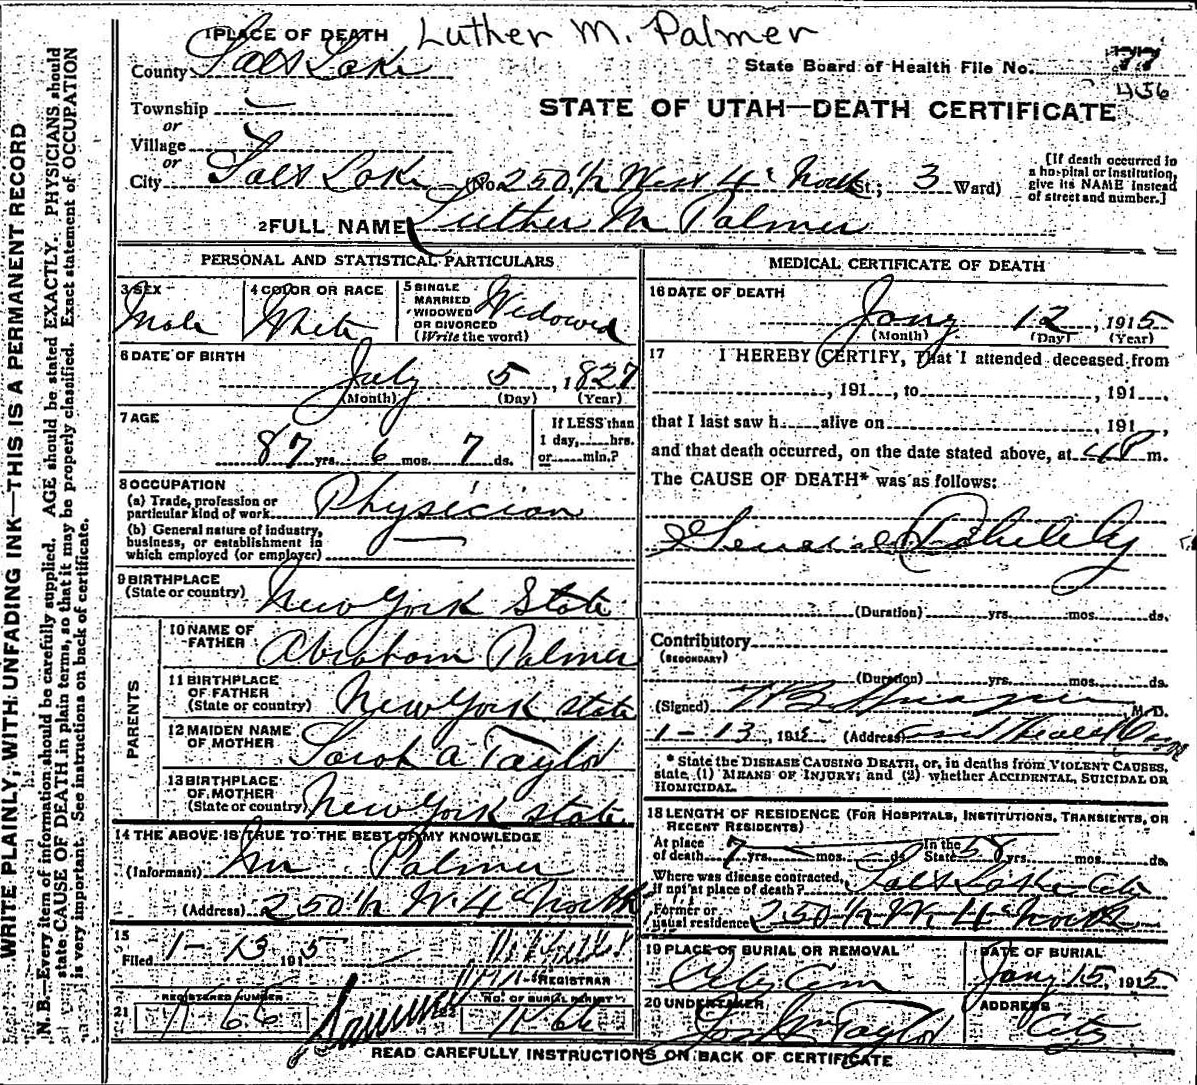 WRITE PLAINLY, WITH UNFADING INK—THIS IS A PERMANENT RECORD
N. B.—Every item of information should be carefully supplied. AGE should be stated EXACTLY. PHYSICIANS should
state CAUSE OF DEATH in plain terms, so that it may be properly classified. Exact statement of OCCUPATION
is very important. See instructions on back of certificate.
Luther M. Palmer
1 PLACE OF DEATH
County Salt Lake
State Board of Health File No. 77
456
Township
or
Village
or
STATE OF UTAH—DEATH CERTIFICATE
City Salt Lake (No. 250 1/2 West 4" North St.; 3 Ward)
[If death occurred in
a hospital or institution,
give its NAME instead
of street and number.]
2 FULL NAME Luther M Palmer
PERSONAL AND STATISTICAL PARTICULARS
3 SEX
Male
4 COLOR OR RACE
White
5 SINGLE
MARRIED
WIDOWED
OR DIVORCED
(Write the word)
Widowed
6 DATE OF BIRTH
July 5, 1827
(Month) (Day) (Year)
7 AGE
87 yrs. 6 mos. 7 ds.
If LESS than
1 day, hrs.
or min.?
8 OCCUPATION
(a) Trade, profession or
particular kind of work
Physician
(b) General nature of industry,
business, or establishment in
which employed (or employer)
9 BIRTHPLACE
(State or country)
New York State
PARENTS
10 NAME OF
FATHER
Abraham Palmer
11 BIRTHPLACE
OF FATHER
(State or country)
New York State
12 MAIDEN NAME
OF MOTHER
Sarah A Taylor
13 BIRTHPLACE
OF MOTHER
(State or country)
New York State
14 THE ABOVE IS TRUE TO THE BEST OF MY KNOWLEDGE
(Informant) Palmer
(Address) 250 1/2 W. 4" North
15
Filed 1-13 1915
REGISTRAR
21
REGISTERED NUMBER
K-66
22
No. OF BURIAL PERMIT
K66
MEDICAL CERTIFICATE OF DEATH
16 DATE OF DEATH
Jany 12, 1915
(Month) (Day) (Year)
17 I HEREBY CERTIFY, That I attended deceased from
, 191 , to , 191 ,
that I last saw h alive on , 191 ,
and that death occurred, on the date stated above, at 4 P m.
The CAUSE OF DEATH* was as follows:
General Debility
(Duration) yrs. mos. ds.
Contributory
(SECONDARY)
(Duration) yrs. mos. ds.
(Signed) , M.D.
1-13, 1915 (Address)
* State the DISEASE CAUSING DEATH, or, in deaths from VIOLENT CAUSES,
state (1) MEANS OF INJURY; and (2) whether ACCIDENTAL, SUICIDAL OR
HOMICIDAL.
18 LENGTH OF RESIDENCE (FOR HOSPITALS, INSTITUTIONS, TRANSIENTS, OR
RECENT RESIDENTS)
At place
of death 7 yrs. mos. ds. In the
State yrs. mos. ds.
Where was disease contracted,
if not at place of death? Salt Lake City
Former or
usual residence 250 1/2 W. 4" North
19 PLACE OF BURIAL OR REMOVAL
City Cem
DATE OF BURIAL
Jany 15, 1915
20 UNDERTAKER
Jos Wm Taylor
ADDRESS
City
READ CAREFULLY INSTRUCTIONS ON BACK OF CERTIFICATE